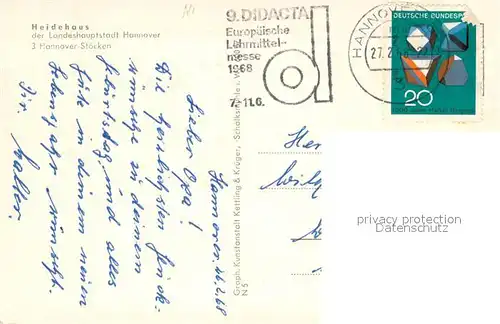 Heidehaus
der Landeshauptstadt Hannover
3 Hannover-Stöcken
9. DIDACTA
Europäische
Lehrmittel-
messe
1968
7.-11.6.
HANNOVER
27.2.68
DEUTSCHE BUNDESPOST
20
Hannover, 26.2.68
Lieber Opa!
Die herzlichsten Glück-
wünsche zu deinem
Geburtstag und alles
Gute in deinem neuen
Lebensjahr wünscht
Dir
Walter.
Graph. Kunstanstalt Kettling & Krüger, Schalksmühle i. W.
privacy protection
Datenschutz